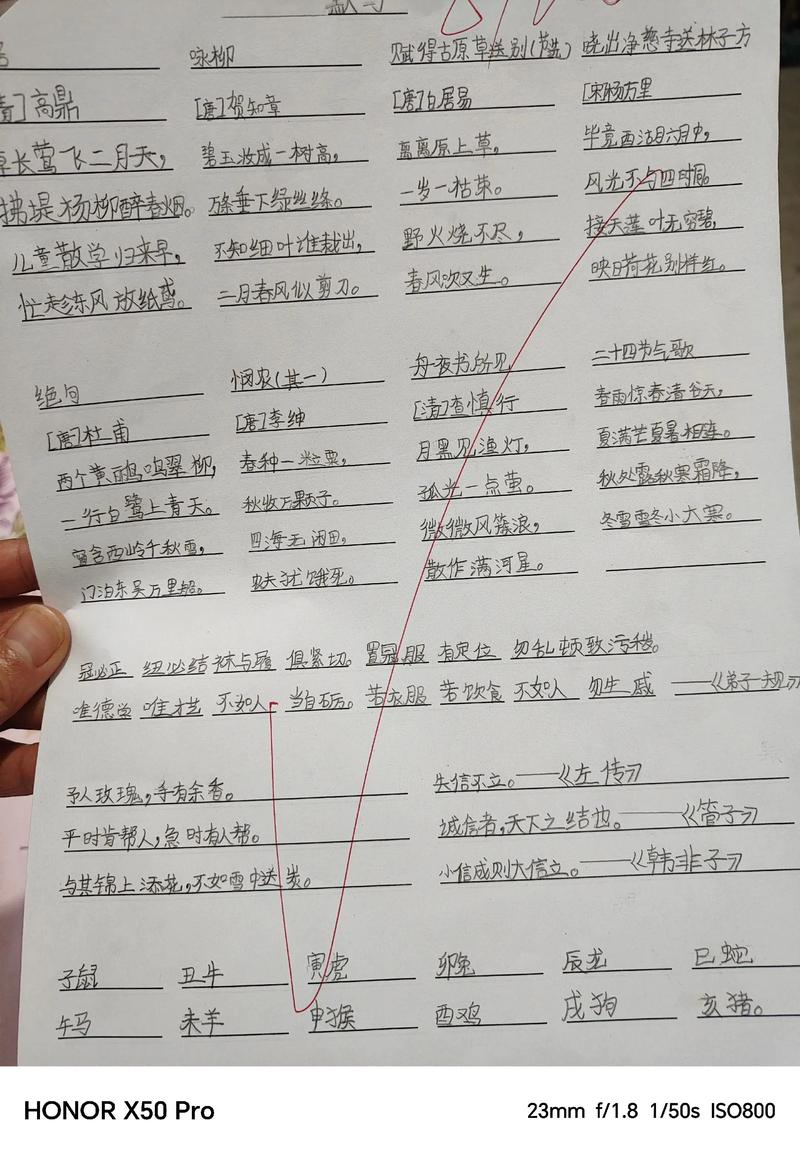 默写
咏柳 赋得古原草送别(节选) 晓出净慈寺送林子方
[清]高鼎 [唐]贺知章 [唐]白居易 [宋]杨万里
草长莺飞二月天, 碧玉妆成一树高, 离离原上草, 毕竟西湖六月中,
拂堤杨柳醉春烟。 万条垂下绿丝绦。 一岁一枯荣。 风光不与四时同。
儿童散学归来早, 不知细叶谁裁出, 野火烧不尽, 接天莲叶无穷碧,
忙趁东风放纸鸢。 二月春风似剪刀。 春风吹又生。 映日荷花别样红。
绝句 悯农(其一) 舟夜书所见 二十四节气歌
[唐]杜甫 [唐]李绅 [清]查慎行 春雨惊春清谷天,
两个黄鹂鸣翠柳, 春种一粒粟, 月黑见渔灯, 夏满芒夏暑相连。
一行白鹭上青天。 秋收万颗子。 孤光一点萤。 秋处露秋寒霜降,
窗含西岭千秋雪, 四海无闲田, 微微风簇浪, 冬雪雪冬小大寒。
门泊东吴万里船。 农夫犹饿死。 散作满河星。
冠必正 纽必结 袜与履 俱紧切。 置冠服 有定位 勿乱顿 致污秽。
唯德学 唯才艺 不如人 当自砺。 若衣服 若饮食 不如人 勿生戚 ——《弟子规》
予人玫瑰,手有余香。 失信不立。——《左传》
平时肯帮人,急时有人帮。 诚信者,天下之结也。——《管子》
与其锦上添花,不如雪中送炭。 小信成则大信立。——《韩非子》
子鼠 丑牛 寅虎 卯兔 辰龙 巳蛇
午马 未羊 申猴 酉鸡 戌狗 亥猪。
HONOR X50 Pro 23mm f/1.8 1/50s ISO800